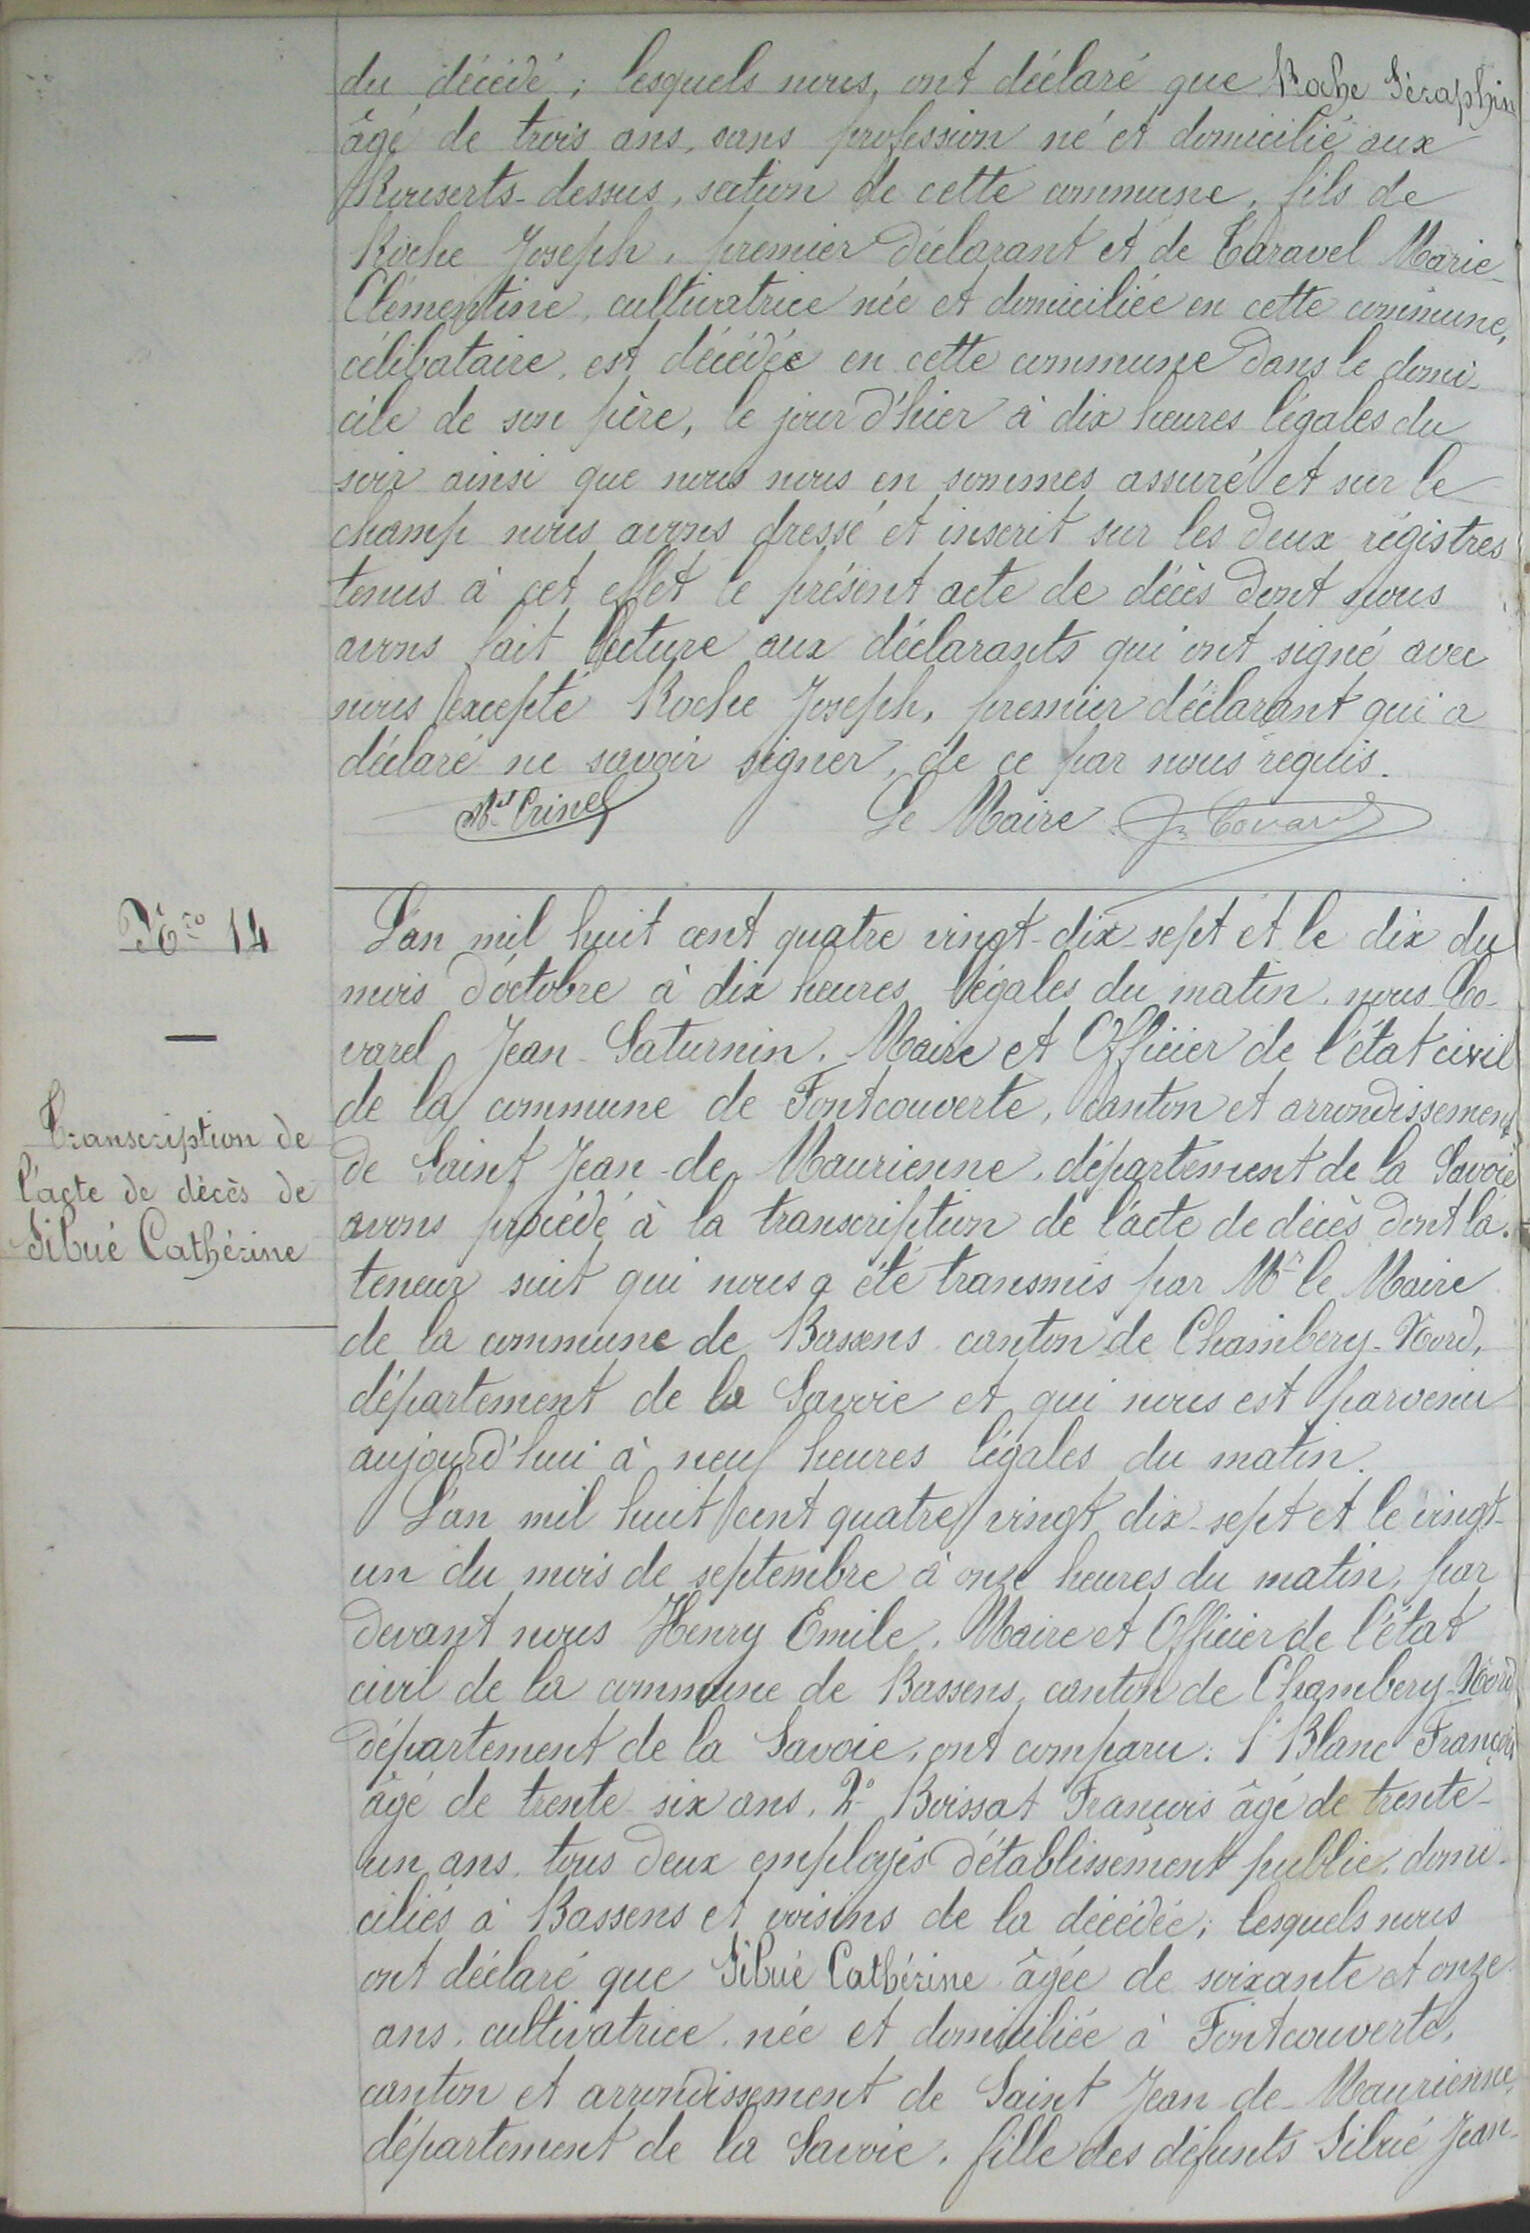 du décédé ; lesquels nous, ont déclaré que Roche Séraphin
âgé de trois ans, sans profession né et domicilié aux
Rouserts-dessus, section de cette commune, fils de
Roche Joseph, premier déclarant et de Taravel Marie-
Clémentine, cultivatrice née et domiciliée en cette commune,
célibataire, est décédée en cette commune dans le domi-
cile de son père, le jour d'hier à dix heures légales du
soir ainsi que nous nous en sommes assuré et sur le
champ nous avons dressé et inscrit sur les deux régistres
tenus à cet effet le présent acte de décès dont nous
avons fait lecture aux déclarants qui ont signé avec
nous excepté Roche Joseph, premier déclarant qui a
déclaré ne savoir signer, de ce par nous requis.
Le Maire
Nro 14
Transcription de
l'acte de décès de
Sibué Cathérine
L'an mil huit cent quatre vingt-dix-sept et le dix du
mois d'octobre à dix heures légales du matin, nous Co-
varel Jean-Saturnin, Maire et Officier de l'état civil
de la commune de Fontcouverte, canton et arrondissement
de Saint Jean-de-Maurienne, département de la Savoie
avons procédé à la transcription de l'acte de décès dont la
teneur suit qui nous a été transmis par Mr le Maire
de la commune de Bassens canton de Chambery-Nord,
département de la Savoie et qui nous est parvenu
aujourd'hui à neuf heures légales du matin.
L'an mil huit cent quatre vingt dix-sept et le vingt-
un du mois de septembre à onze heures du matin, par
devant nous Henry Emile, Maire et Officier de l'état
civil de la commune de Bassens, canton de Chambery-Nord
département de la Savoie, ont comparu : 1° Blanc François
âgé de trente-six ans, 2° Boissat François âgé de trente-
un ans, tous deux employés d'établissement public, domi-
ciliés à Bassens et voisins de la décédée; lesquels nous
ont déclaré que Sibué Cathérine âgée de soixante et onze
ans, cultivatrice, née et domiciliée à Fontcouverte,
canton et arrondissement de Saint Jean-de-Maurienne,
département de la Savoie, fille des défunts Sibué Jean-